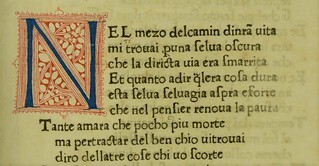 NEL mezo delcamin dinrã uita
mi trouai ,puna selua oscura
che la diricta uia era smarrita
Et quanto adir q̃lera cosa dura
esta selua seluagia aspra eforte
che nel pensier renoua la paura
Tante amara che pocho piu morte
ma pertractar del ben chio uitrouai
diro dellatre cose chi uo scorte